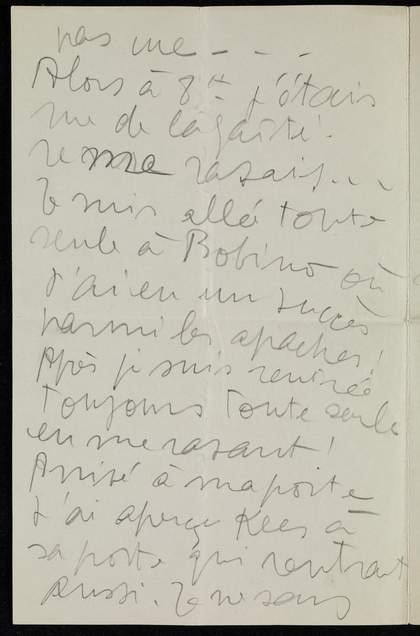 pas me - - -
Alors à 8h j'étais
rue de la gaîté.
Je me rasais...
Je suis allée toute
seule à Bobino où
j'ai eu un succès
parmi les apaches!
Après je suis rentrée
toujours toute seule
en me rasant!
Arrivé à ma porte
j'ai aperçu Kees à
sa porte qui rentrait
aussi. Je ne sais